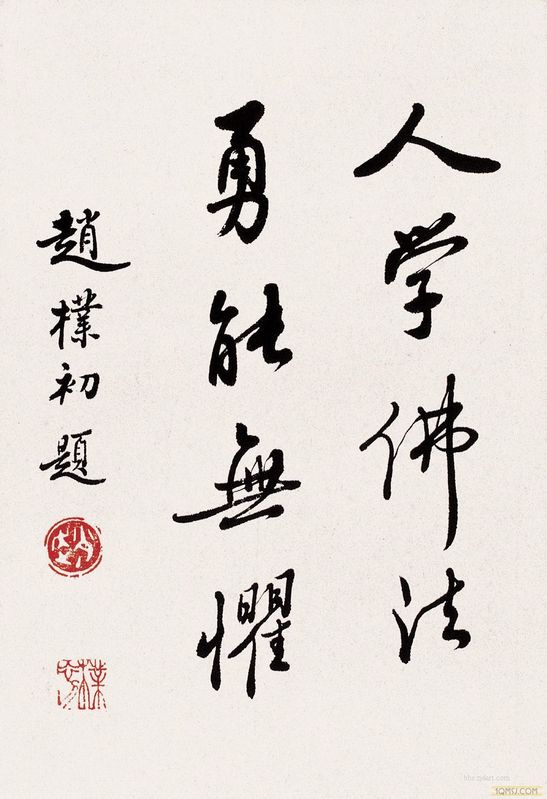 人学佛法
勇能無懼
趙樸初題
趙
樸初
SQMSJ.COM